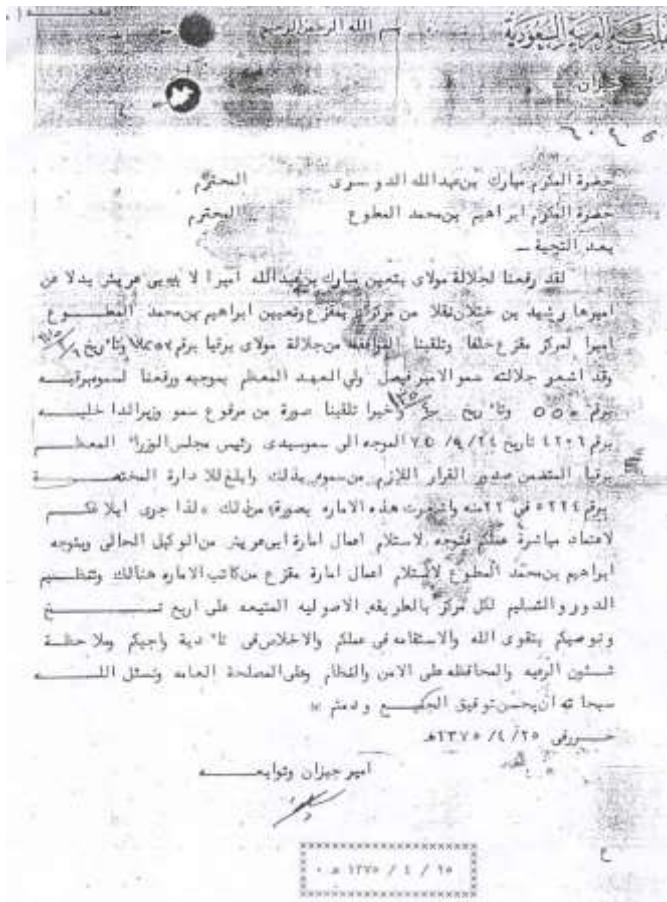 بسم الله الرحمن الرحيم
المملكة العربية السعودية
جيزان
٦٠٤٥
حضرة المكرم مبارك بن عبدالله الدوسرى المحترم
حضرة المكرم ابراهيم بن محمد المطوع المحترم
بعد التحية ــ
لقد رفعنا لجلالة مولاى بتعين مبارك بن عبدالله اميرا لا بيعريش بدلا عن
اميرها رشيد بن خثلان نقلا من مركز مقزع وتعيين ابراهيم بن محمد المطوع
اميرا لمركز مقزع خلفا وتلقينا الموافقه من جلالة مولاى برقيا برقم وتاريخ
وقد اشعر جلالته سمو الامير فيصل ولي العهد المعظم بموجبه ورفعنا لسموه برقيه
برقم ٥٥٥ وتاريخ واخيرا تلقينا صورة من مرفوع سمو وزير الداخليه
برقم ٤٢٠٦ تاريخ ٢٤/ ٩/ ٧٤ الموجه الى سموسيدى رئيس مجلس الوزراء المعظم
برقيا المتضمن صدور القرار اللازم من سموه بذلك وابلغ للادارة المختصة
برقم ٥٢٢٤ في ٢٢منه واشعرت هذه الاماره بصورة من ذلك ٠ لذا جرى ابلاغكم
لاعتماد مباشرة عملكم فتوجه لاستلام اعمال امارة ابى عريش من الوكيل الحالى ويتوجه
ابراهيم بن محمد المطوع لاستلام اعمال امارة مقزع من كاتب الاماره هنالك وتنظيم
الدور والتسليم لكل مركز بالطريقه الاصوليه المتبعه على اربع نسخ
ونوصيكم بتقوى الله والاستقامه في عملكم والاخلاص فى تاءدية واجبكم وملاحظة
شئون الرعيه والمحافظه على الامن والنظام وعلى المصلحة العامه ونسئل الله
سبحانه ان يحسن توفيق الجميع ودمتم
حرر فى ٢٥/ ٤/ ١٣٧٥هـ
امير جيزان وتوابعه
ع
٢٥ / ٤ / ١٣٧٥ هـ ٠